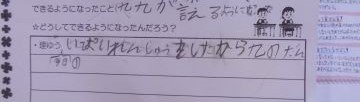 できるようになったこと(九九が言えるようになった
☆どうしてできるようになったんだろう？
・りゆう いっぱいれんしゅうをしたから九のだん